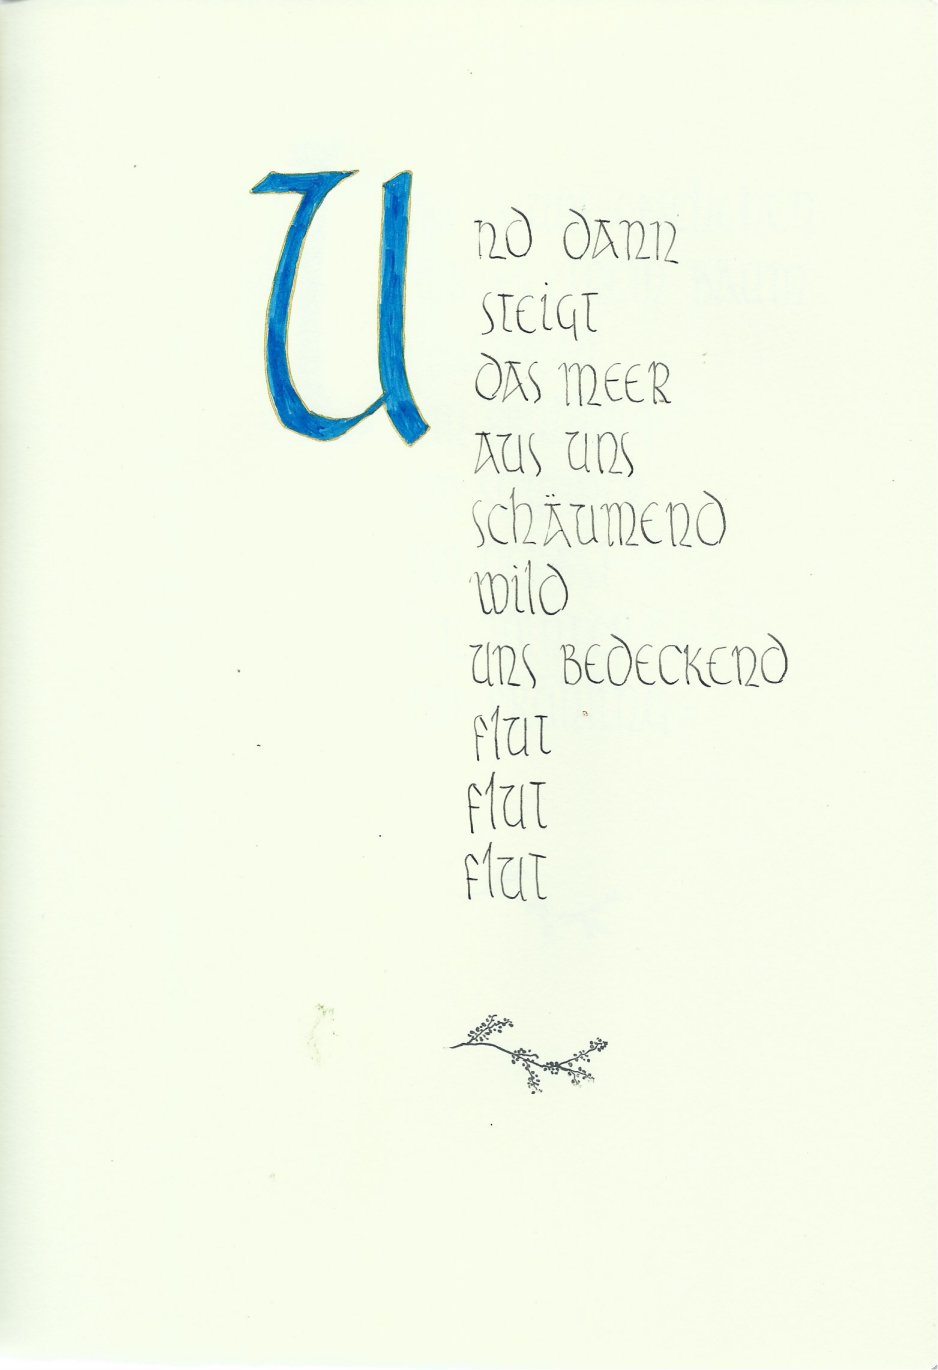 Und dann
steigt
das Meer
aus uns
schäumend
wild
uns bedeckend
flut
flut
flut